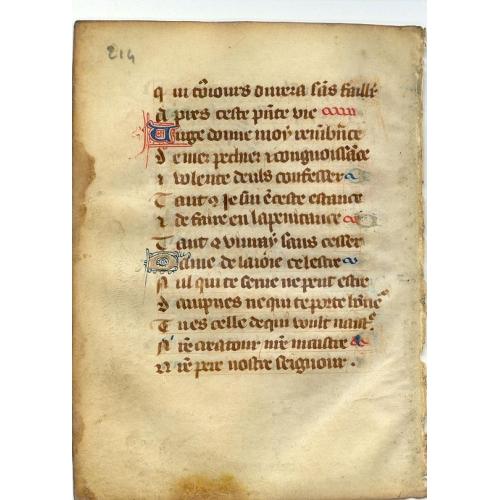 214
q ui toiours durera sãs faillir
A pres ceste pñte vie
Juge donne moy remẽbñce
D e mes pechies ⁊ congnoissãce
⁊ volente de uls confesser
T ant q̃ Je sui e ceste estance
⁊ de faire en la penitance
T ant q̃ viuray sans cesser
Dame de la ioie celestre
N ul qui te serue ne peut estre
D ampnes ne qui te porte
T u es celle de qui voult
N r̃e creatour nr̃e maistre
N r̃e pere nostre seignour .